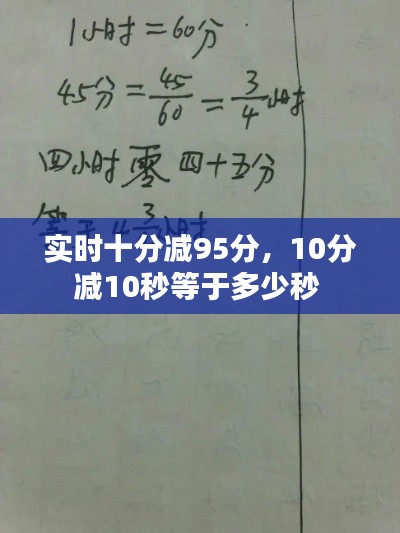 1小时=60分
45分=45/60=3/4小时
四小时零四十五分
实时十分减95分，10分
减10秒等于多少秒